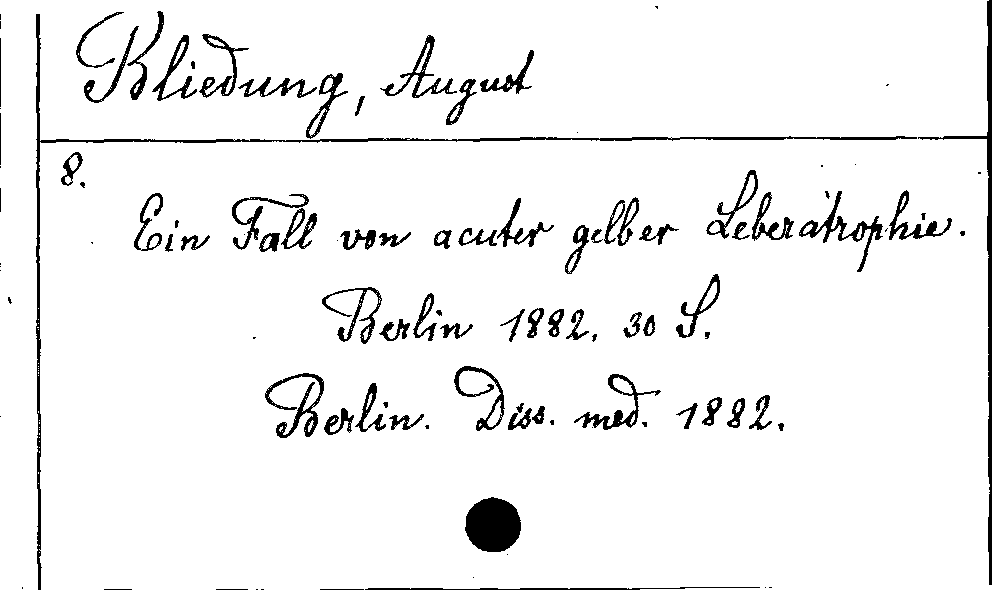 Bliedung, August
8.
Ein Fall von acuter gelber Leberatrophie.
Berlin 1882. 30 S.
Berlin. Diss. med. 1882.